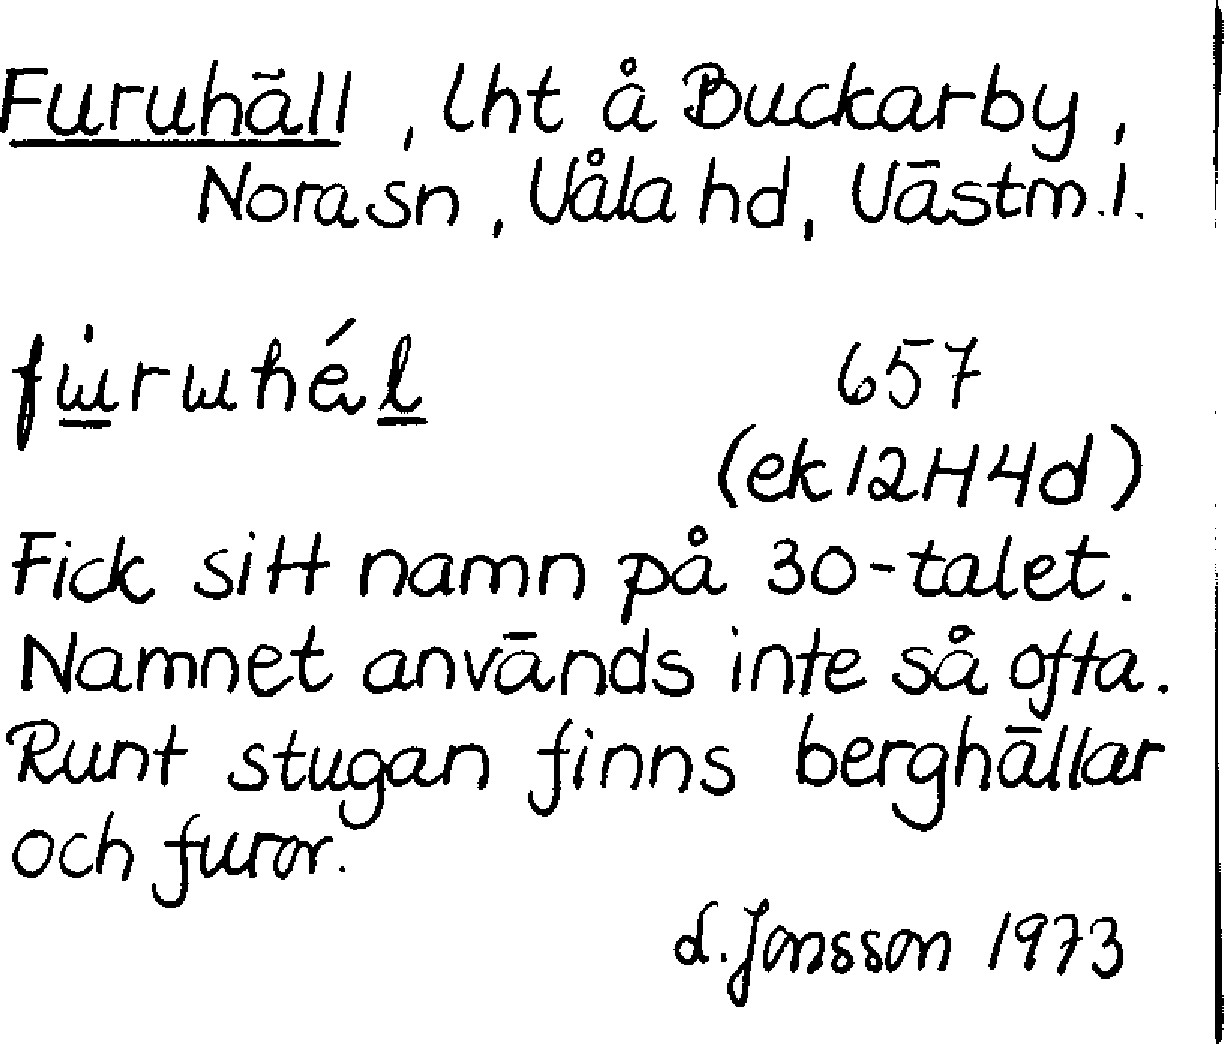 Furuhäll, lht å Buckarby,
Nora sn, Våla hd, Västm.l.
657
(ek 12H4d)
Fick sitt namn på 30-talet.
Namnet används inte så ofta.
Runt stugan finns berghällar
och furor.
d. Jonsson 1973